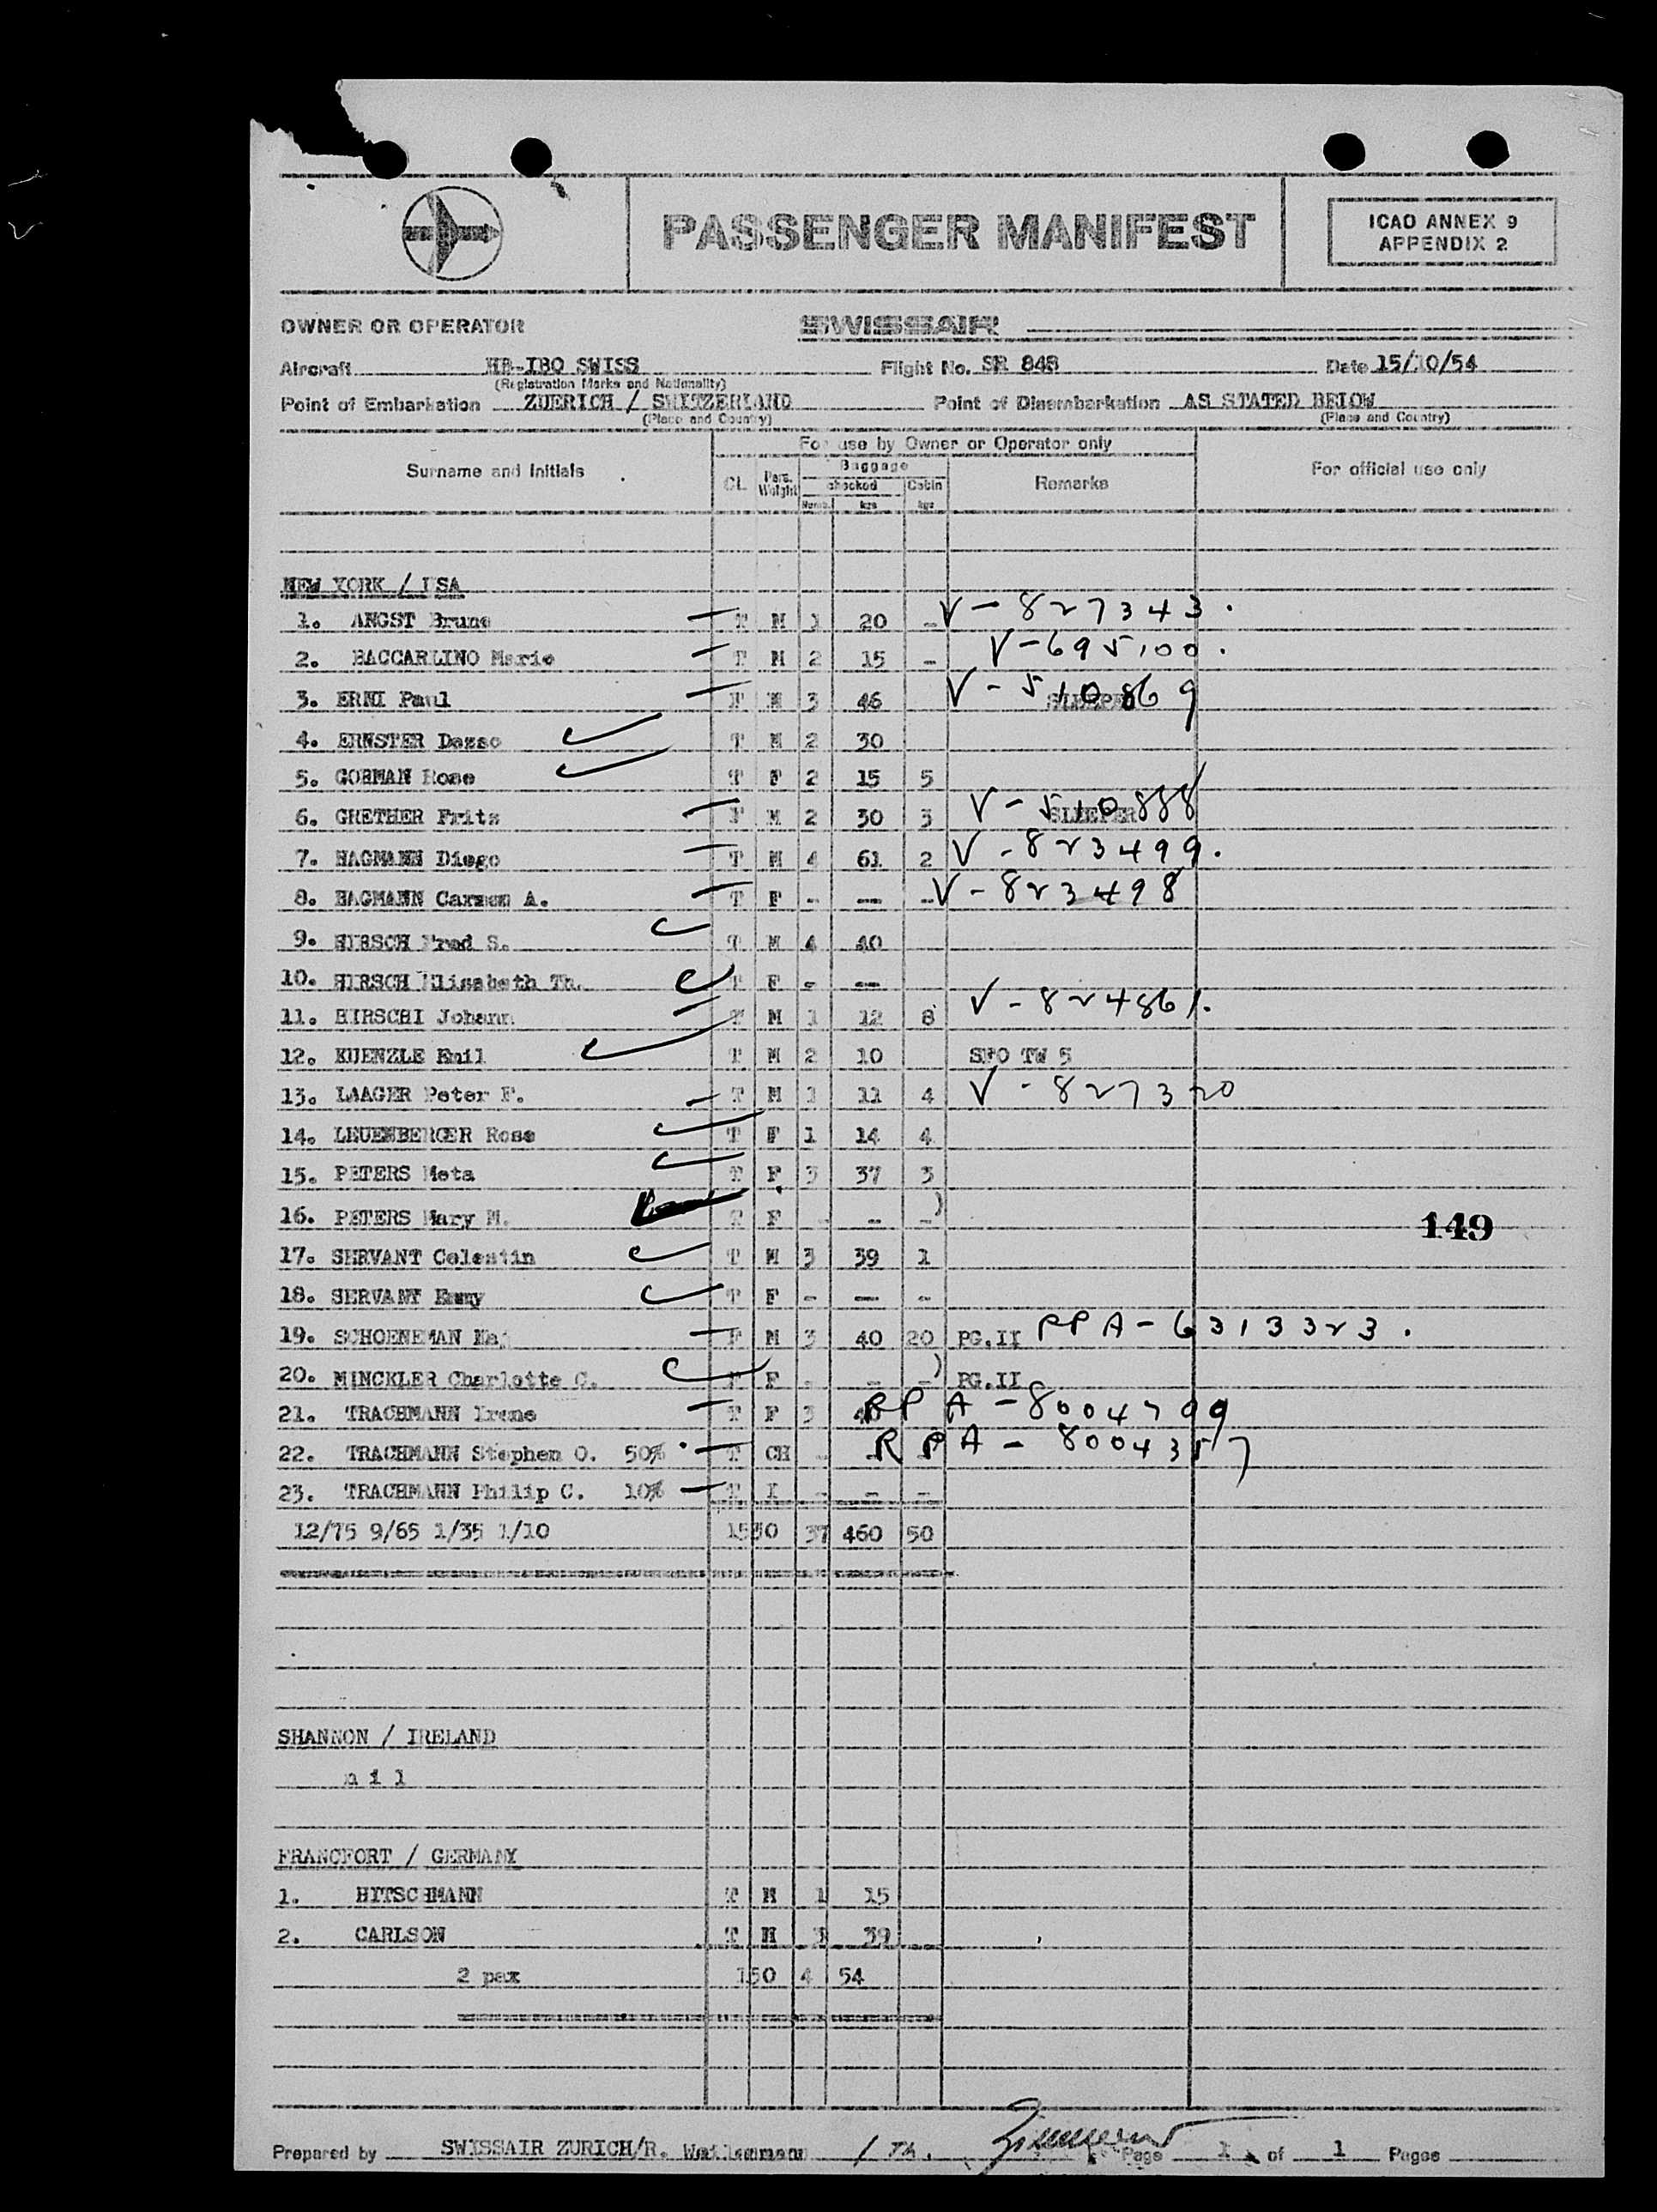 PASSENGER MANIFEST
ICAO ANNEX 9
APPENDIX 2
OWNER OR OPERATOR SWISSAIR
Aircraft HB-IBO SWISS Flight No. SR 848 Date 15/10/54
(Registration Marks and Nationality)
Point of Embarkation ZUERICH / SWITZERLAND Point of Disembarkation AS STATED BELOW
(Place and Country) (Place and Country)
For use by Owner or Operator only
Surname and Initials CL. Pers. Weight Baggage checked Cabin Remarks For official use only
Numb. kgs kgs
NEW YORK / USA
1. ANGST Bruno T M 1 20 - V-827343.
2. BACCARLINO Mario T M 2 15 - V-695100.
3. ERNI Paul F M 3 46 SLEEPER V-510869
4. ERNSTER Dezso T M 2 30
5. GORMAN Rose T F 2 15 5
6. GRETHER Fritz F M 2 30 3 SLEEPER V-510888
7. HAGMANN Diego T M 4 61 2 V-823499.
8. HAGMANN Carmen A. T F - -- - V-823498
9. HIRSCH Fred S. T M 4 40
10. HIRSCH Elisabeth Th. T F - --
11. HIRSCHI Johann T M 1 12 8 V-824861.
12. KUENZLE Emil T M 2 10 SFO TW 5
13. LAAGER Peter F. T M 1 11 4 V-827320
14. LEUENBERGER Rosa T F 1 14 4
15. PETERS Meta T F 3 37 3
16. PETERS Mary M. T F - - -)
149
17. SERVANT Celestin T M 3 39 1
18. SERVANT Emmy T F - -- -
19. SCHOENEMAN F M 3 40 20 PG.II PPA-6313323.
20. MINCKLER Charlotte C. F F - - -) PG.II
21. TRACHMANN Irene T F 3 40 RPA-8004799
22. TRACHMANN Stephen O. 50% T CH - RPA-8004357
23. TRACHMANN Philip C. 10% T I - - -
12/75 9/65 1/35 1/10 1530 37 460 50
SHANNON / IRELAND
n i l
FRANCFORT / GERMANY
1. HITSCHMANN T M 1 15
2. CARLSON T M 3 39
2 pax 150 4 54
Prepared by SWISSAIR ZURICH/R. / Th. Page 1 of 1 Pages